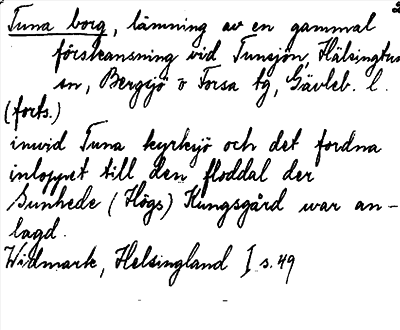 Tuna borg, lämning av en gammal
förskansning vid Tunsjön, Hälsingtuna
sn, Bergsjö o Forsa tg, Gävleb. l.
(forts.)
inwid Tuna kyrksjö och det fordna
inloppet till den floddal der
Sunhede (Högs) Kungsgård war an-
lagd.
Widmark, Helsingland I s. 49